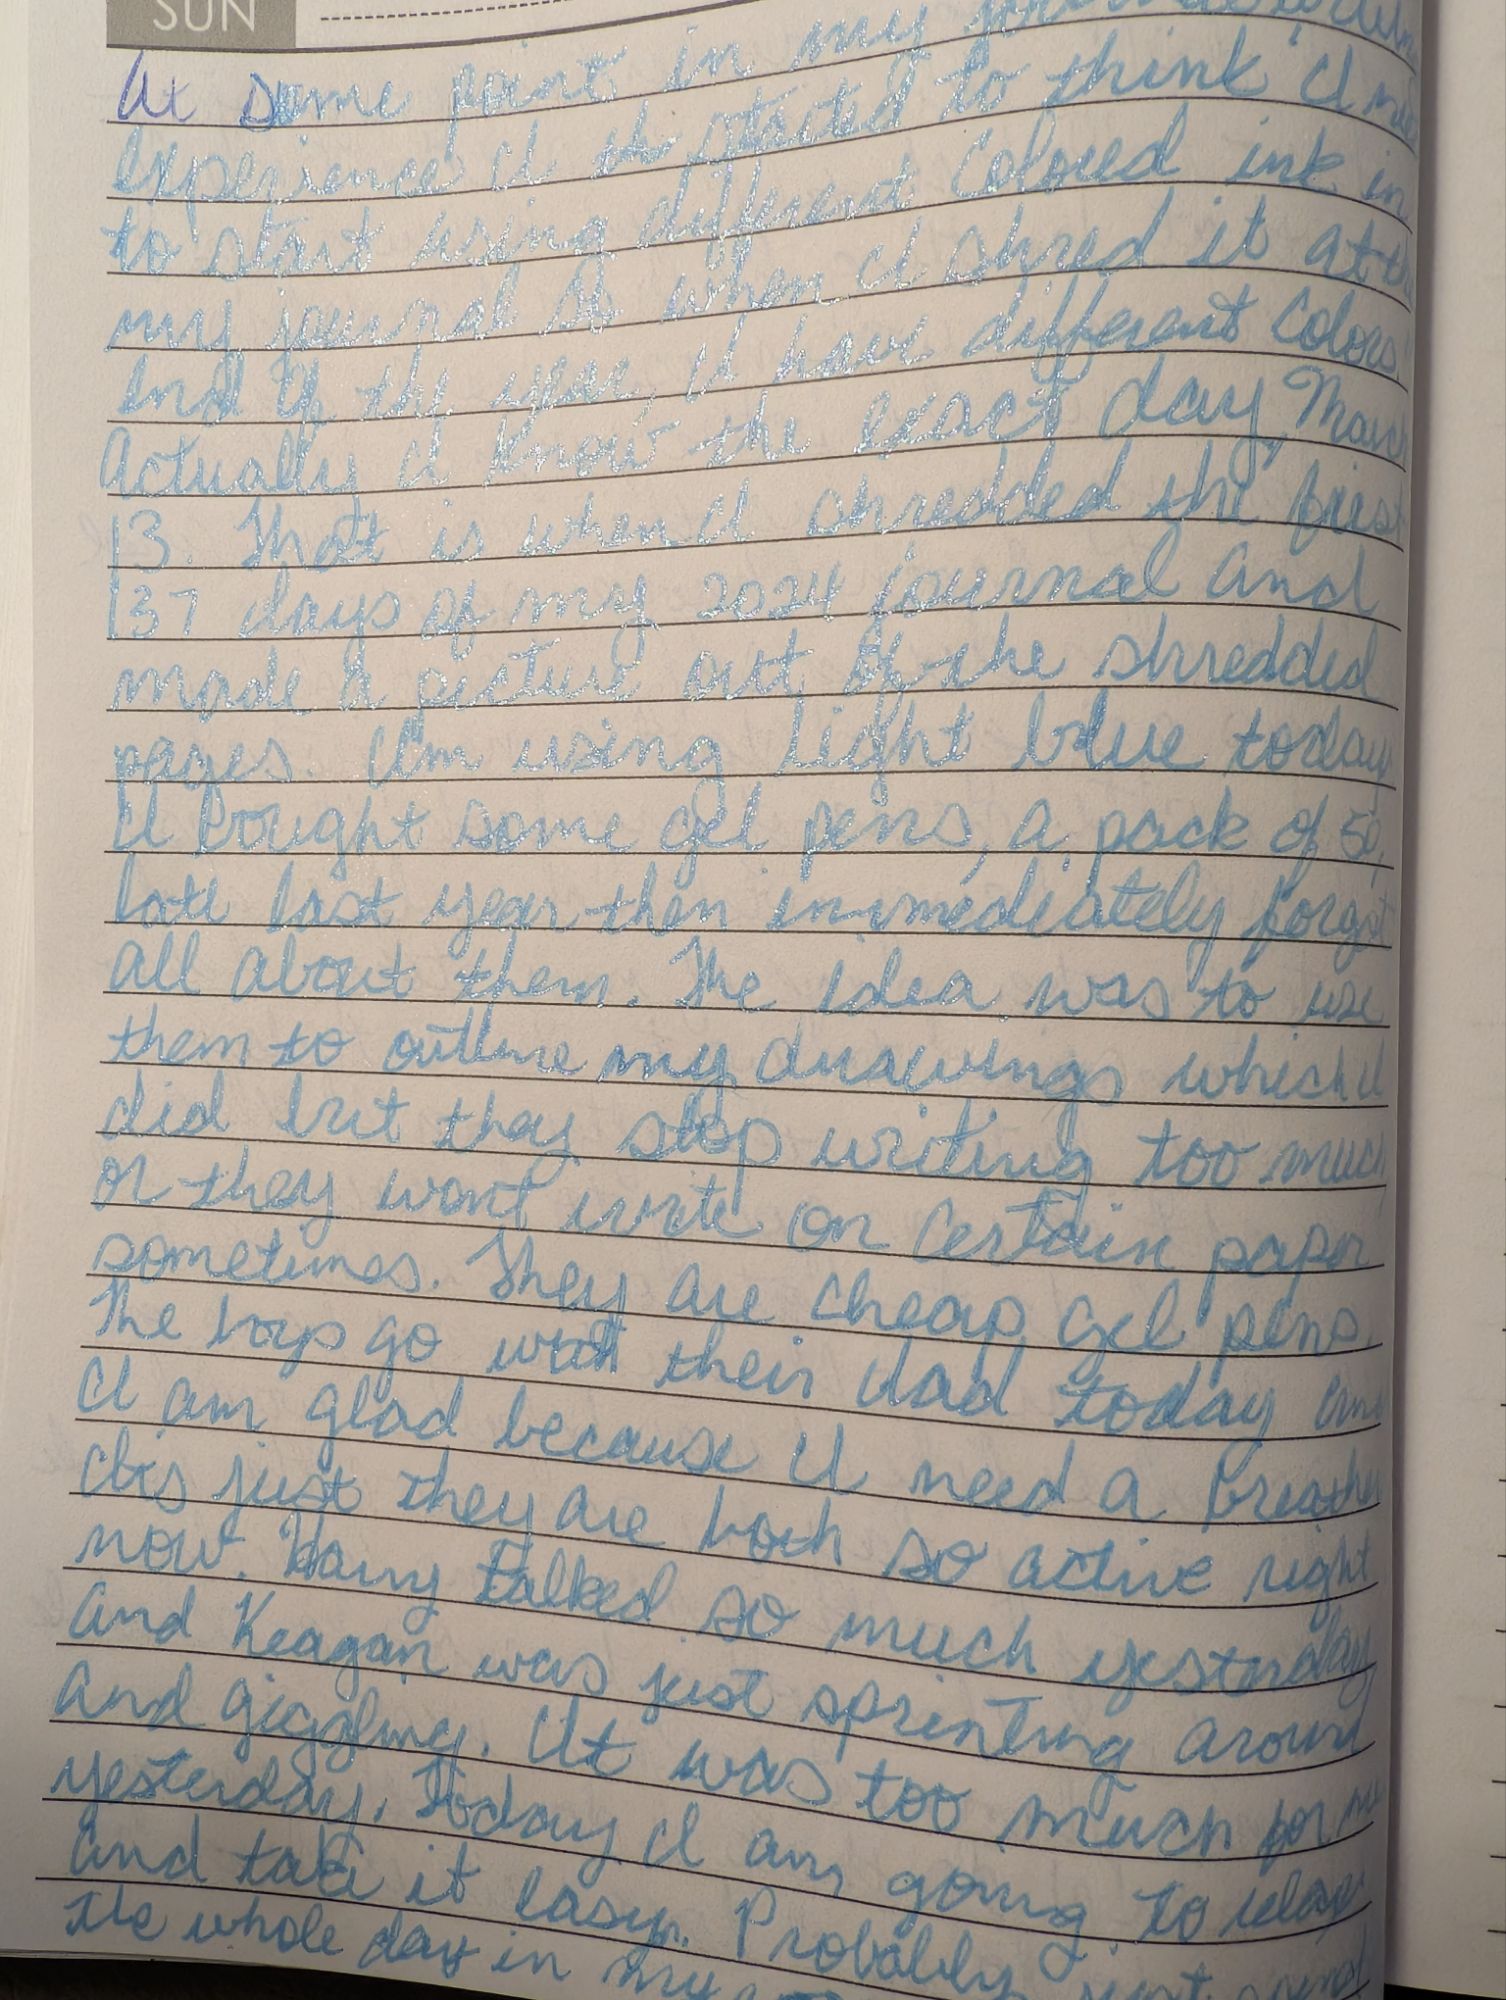 SUN
At some point in my
experience I th started to think I
to start using different colored ink in
my journal so when I shred it at
end of the year, I have different colors.
Actually I know the exact day, March
13. That is when I shredded the first
137 days of my 2024 journal and
made a picture out of the shredded
pages. I'm using light blue today
I bought some gel pens, a pack of 50,
late last year then immediately forgot
all about them. The idea was to use
them to outline my drawings which I
did but they stop writing too much
or they wont write on certain paper
sometimes. They are cheap gel pens.
The boys go with their dad today and
I am glad because I need a breather
just they are both so active right
now. Harry talked so much yesterday
and Keagan was just sprinting around
and giggling. It was too much for me
yesterday. Today I am going to relax
and take it easy. Probably just spend
the whole day in my